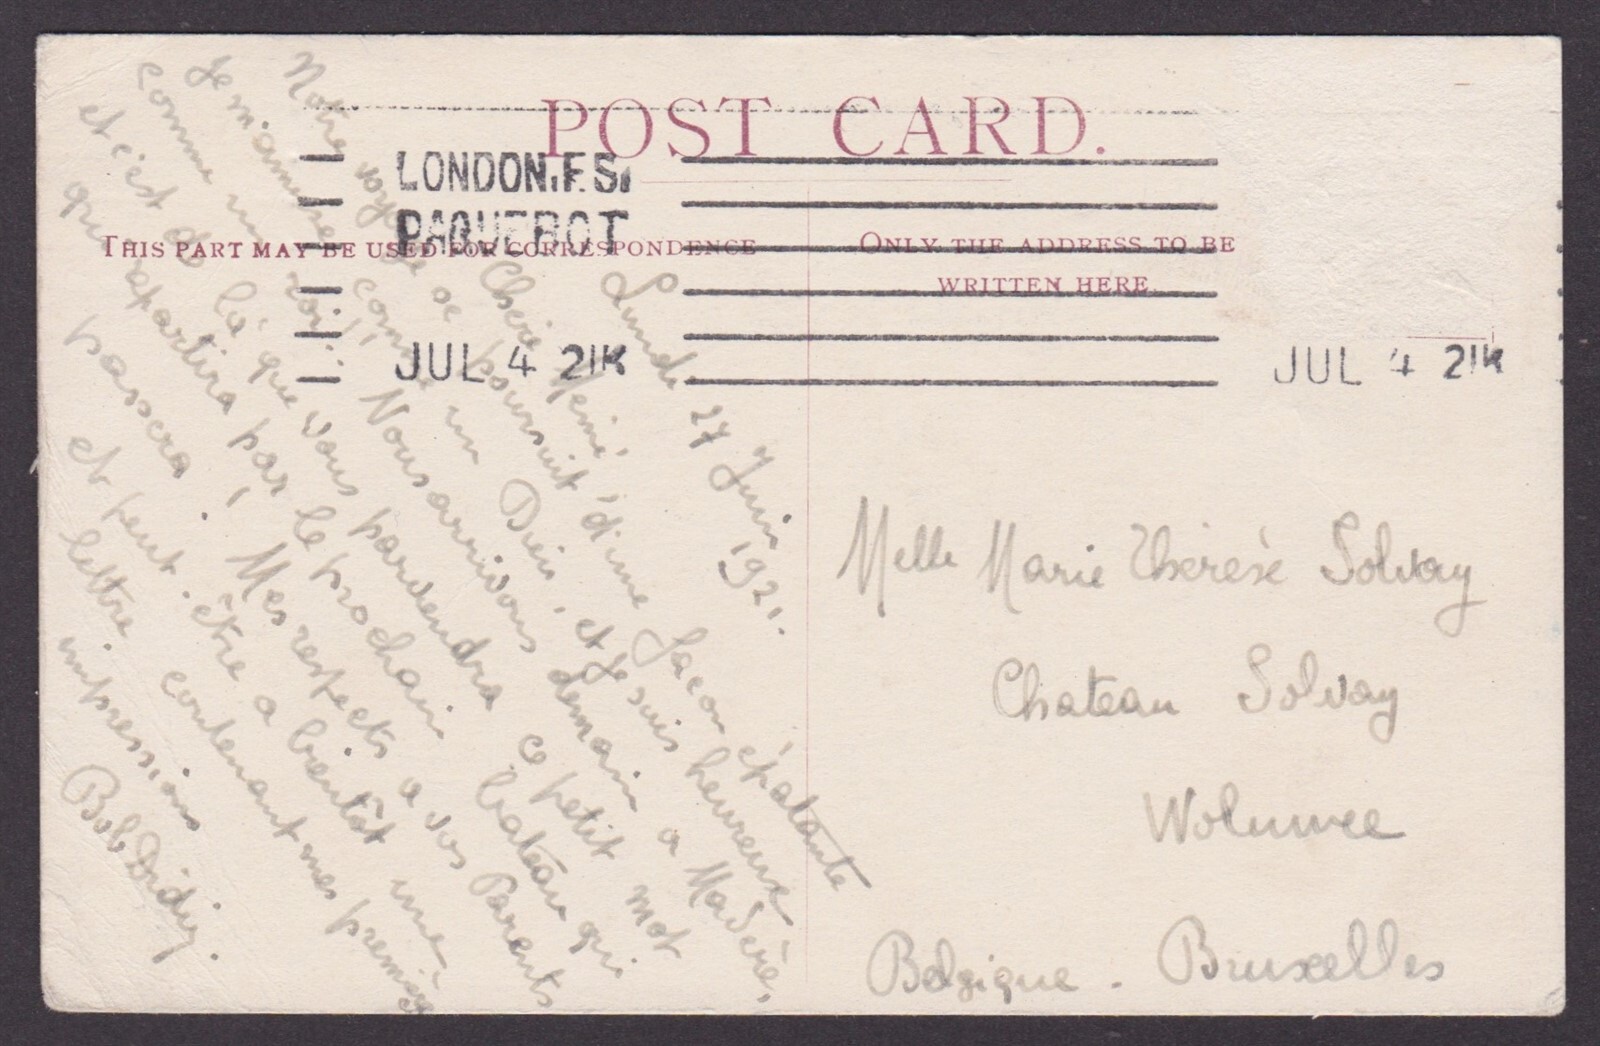 POST CARD.
LONDON.F.S.
PAQUEBOT
JUL 4 21K
JUL 4 21K
THIS PART MAY BE USED FOR CORRESPONDENCE
ONLY THE ADDRESS TO BE
WRITTEN HERE.
Lundi 27 Juin 1921.
Chérie Mémé,
Notre voyage se poursuit d'une façon épatante
Je m'amuse comme un Dieu, et je suis heureux
comme un roi!! Nous arrivons demain a Madère,
et c'est de là que vous parviendra ce petit mot
qui repartira par le prochain bateau qui
passera. Mes respects a vos Parents
et peut-être a bientôt une
lettre contenant mes premières
impressions
Bob Didier.
Melle Marie Thérèse Solvay
Chateau Solvay
Woluwee
Bruxelles
Belgique.